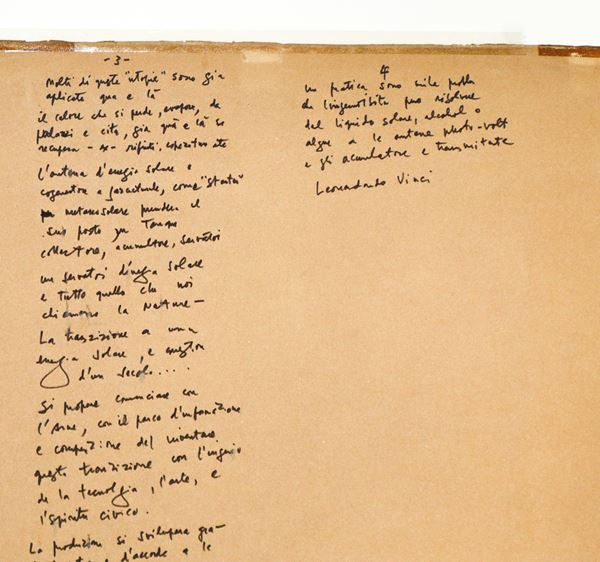 - 3 -
Molti di queste "utopie" sono già
aplicate qua e là
il calore che si perde, evapora, da
palazzi e cità, già quà e là se
recupera - ex - rifiuti,
L'antena d'energia solare e
cogenatore a fare, come "Statui"
metanosolare prendera il
suo posto
collectore, acumultore, servatori
un servatori d'enega solare
e tutto quello che noi
chiamamo la NATURE -
La transizione a una
energia solare, e question
d'un secolo....
Si propone cominciare con
l'Arne, con il parco d'informazione
e compezione del inventaro
questa transizione con l'ingenio
de la tecnolgia, l'arte, e
l'spirito civico.
La produzione si svilupera gra-
d'accordo a le
4
un pratica sono mile
da l'ingenolbita puo risolvere
dal liquido solare, alcohol o
algue a le antene photo-volt
e gli acumulatore e transmitate
Leonardando Vinci